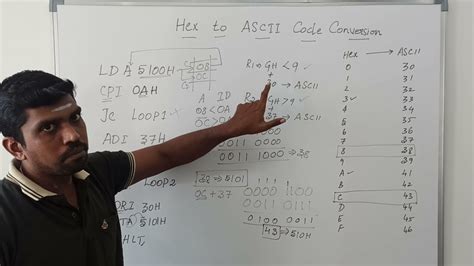 Hex to ASCII Code Conversion
LDA 5100H
CPI 0AH
JC LOOP1
ADI 37H
LOOP2
ORI 30H
STA 5101H
HLT
C 08
0C
A ID
08 < 0A
0C > 0A
R1 → GH < 9 ✓
+
30 → ASCII
GH > 9 ✓
+
37 → ASCII
0000
0011 1000 → 38
38 → 5101
0C + 37
0000 1100
0100 0011
43 → 510H
Hex → ASCII
0 30
1 31
2 32
3 ✓ 33
4 34
5 35
6 36
7 37
8 38
9 39
A ✓ 41
B 42
C 43
D 44
E 45
F 46